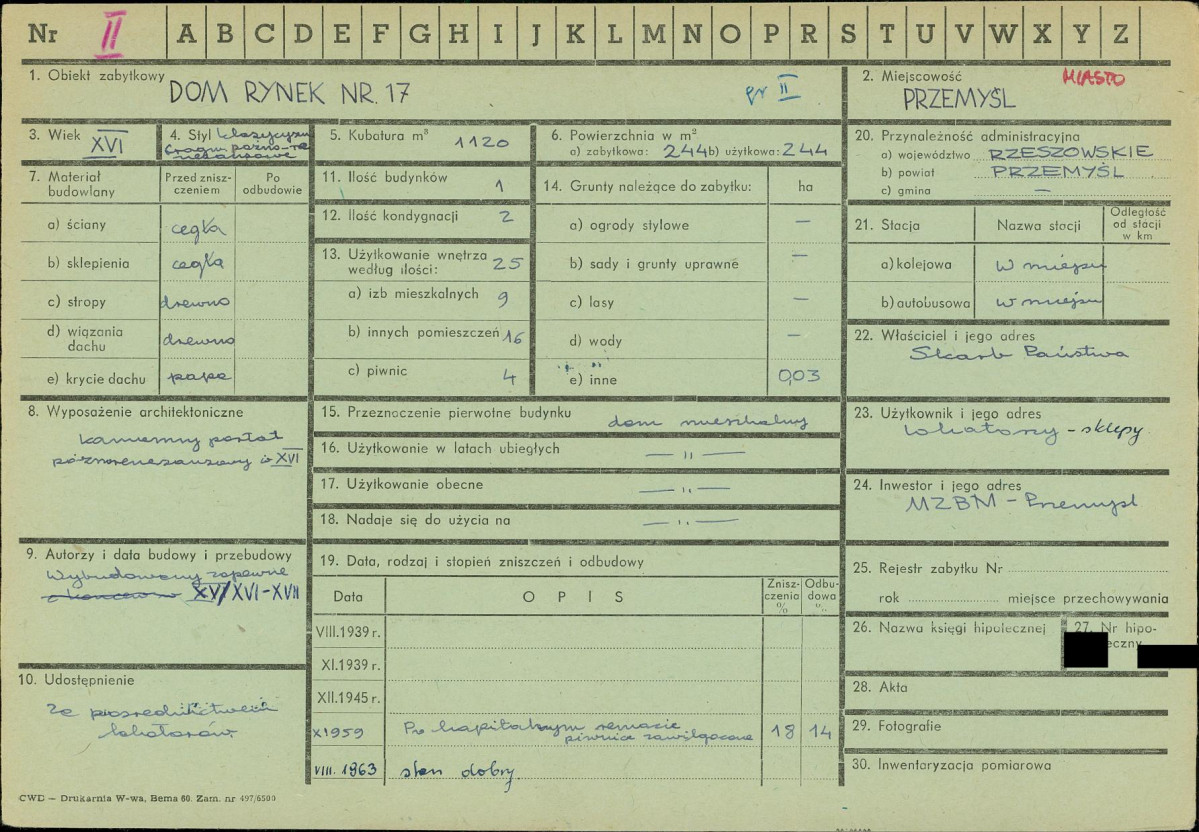 Nr II A B C D E F G H I J K L M N O P R S T U V W X Y Z
1. Obiekt zabytkowy
DOM RYNEK NR. 17
gr II
2. Miejscowość MIASTO
PRZEMYŚL
3. Wiek XVI
4. Styl klasycyzm
renesansowe
5. Kubatura m³ 1120
6. Powierzchnia w m²
a) zabytkowa: 244 b) użytkowa: 244
7. Materiał budowlany
Przed zniszczeniem
Po odbudowie
a) ściany cegła
b) sklepienia cegła
c) stropy drewno
d) wiązania dachu drewno
e) krycie dachu papa
8. Wyposażenie architektoniczne
kamienny portal
późnorenesansowy w XVI
9. Autorzy i data budowy i przebudowy
Wybudowany zapewne
XV/XVI-XVII
10. Udostępnienie
Za pośrednictwem
lokatorów
11. Ilość budynków 1
12. Ilość kondygnacji 2
13. Użytkowanie wnętrza według ilości: 25
a) izb mieszkalnych 9
b) innych pomieszczeń 16
c) piwnic 4
14. Grunty należące do zabytku: ha
a) ogrody stylowe —
b) sady i grunty uprawne —
c) lasy —
d) wody —
e) inne 0,03
15. Przeznaczenie pierwotne budynku dom mieszkalny
16. Użytkowanie w latach ubiegłych — " —
17. Użytkowanie obecne — " —
18. Nadaje się do użycia na — " —
19. Data, rodzaj i stopień zniszczeń i odbudowy
Data
OPIS
Zniszczenia %
Odbudowa %
VIII.1939 r.
XI.1939 r.
XII.1945 r.
X 1959 Po kapitalnym remoncie
piwnice zawilgocone 18 14
VIII. 1963 stan dobry
20. Przynależność administracyjna
a) województwo RZESZOWSKIE
b) powiat PRZEMYŚL
c) gmina —
21. Stacja
Nazwa stacji
Odległość od stacji w km
a) kolejowa w miejscu
b) autobusowa w miejscu
22. Właściciel i jego adres
Skarb Państwa
23. Użytkownik i jego adres
lokatorzy - sklepy
24. Inwestor i jego adres
MZBM - Przemyśl
25. Rejestr zabytku Nr
rok miejsce przechowywania
26. Nazwa księgi hipotecznej
27. Nr hipo-
eczny
28. Akta
29. Fotografie
30. Inwentaryzacja pomiarowa
CWD — Drukarnia W-wa, Bema 60. Zam. nr 497/6500